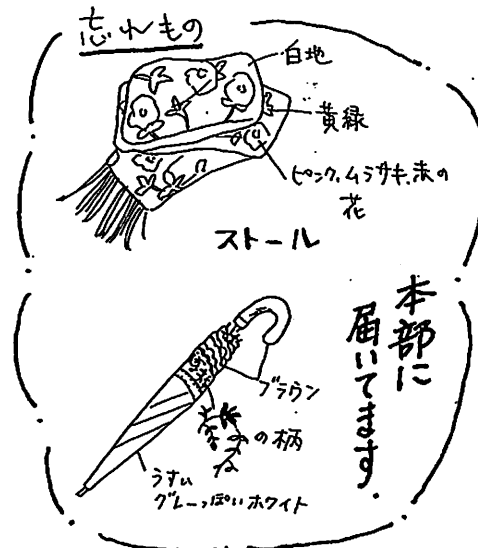 忘れもの
白地
黄緑
ピンク、ムラサキ、赤の
花
ストール
本部に
届いてます.
ブラウン
の柄
うすい
グレーっぽいホワイト